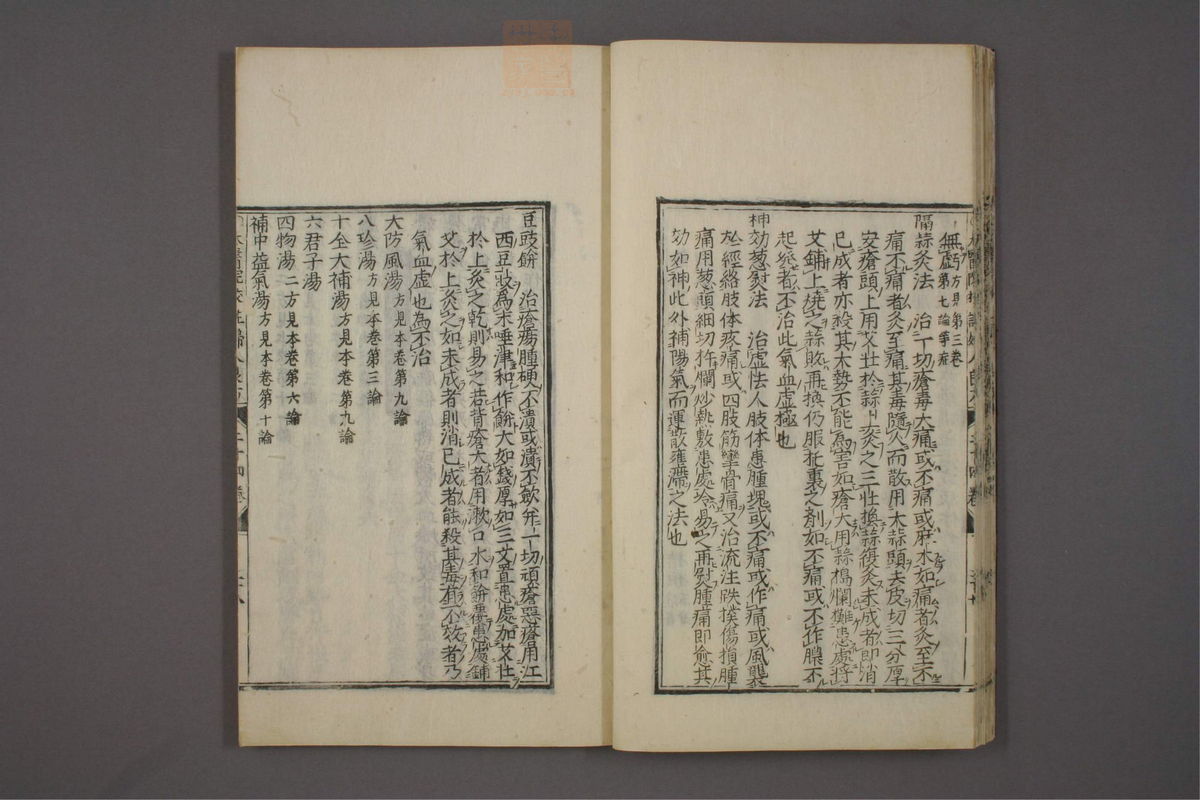 無虛方見第三卷第七論等症
隔蒜灸法 治一切瘡毒大痛或不痛或麻木如痛者灸至不
痛不痛者灸至痛其毒隨火而散用大蒜頭去皮切三分厚
安瘡頭上用艾壯於蒜上灸之三壯換蒜復灸未成者即消
已成者亦殺其大勢不能為害如瘡大用蒜搗爛攤患處將
艾鋪上燒之蒜敗再換仍服托裏之劑如不痛或不作膿不
起發者不治此氣血虛極也
神効葱熨法 治虛怯人肢體患腫塊或不痛或作痛或風襲
於經絡肢体疼痛或四肢筋攣骨痛又治流注跌撲傷損腫
痛用葱頭細切杵爛炒熱敷患處冷易之再熨腫痛即愈其
効如神此外補陽氣而運散壅滯之法也
豆豉餅 治瘡瘍腫硬不潰或潰不斂并一切頑瘡惡瘡用江
西豆豉為末唾津和作餅大如錢厚如三文置患處加艾壯
於上灸之乾則易之若背瘡大者用漱口水和餅覆患處鋪
艾於上灸之如未成者則消已成者能殺其毒有不效者乃
氣血虛也為不治
大防風湯方見本卷第九論
八珍湯方見本卷第三論
十全大補湯方見本卷第九論
六君子湯
四物湯二方見本卷第六論
補中益氣湯方見本卷第十論
太醫院校註婦人良方 二十四卷